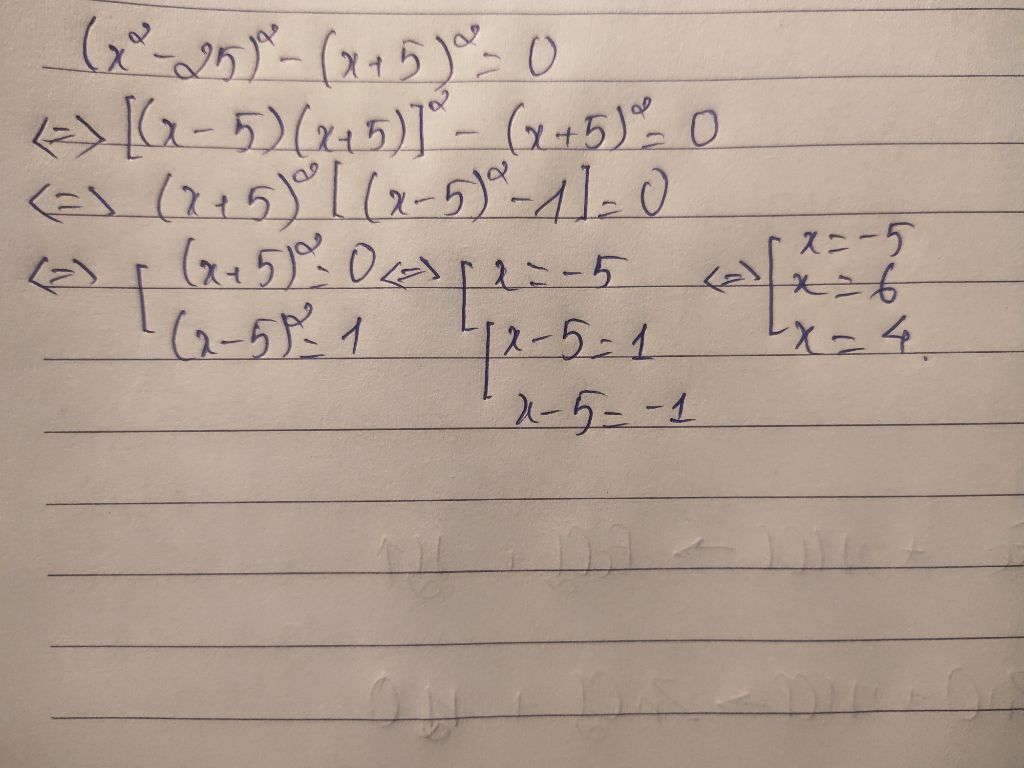 (x² - 25)² - (x + 5)² = 0
<=> [(x - 5)(x + 5)]² - (x + 5)² = 0
<=> (x + 5)² [(x - 5)² - 1] = 0
<=> [ (x + 5)² = 0 <=> [ x = -5 <=> [ x = -5
(x - 5)² = 1 [ x - 5 = 1 x = 6
x - 5 = -1 x = 4.